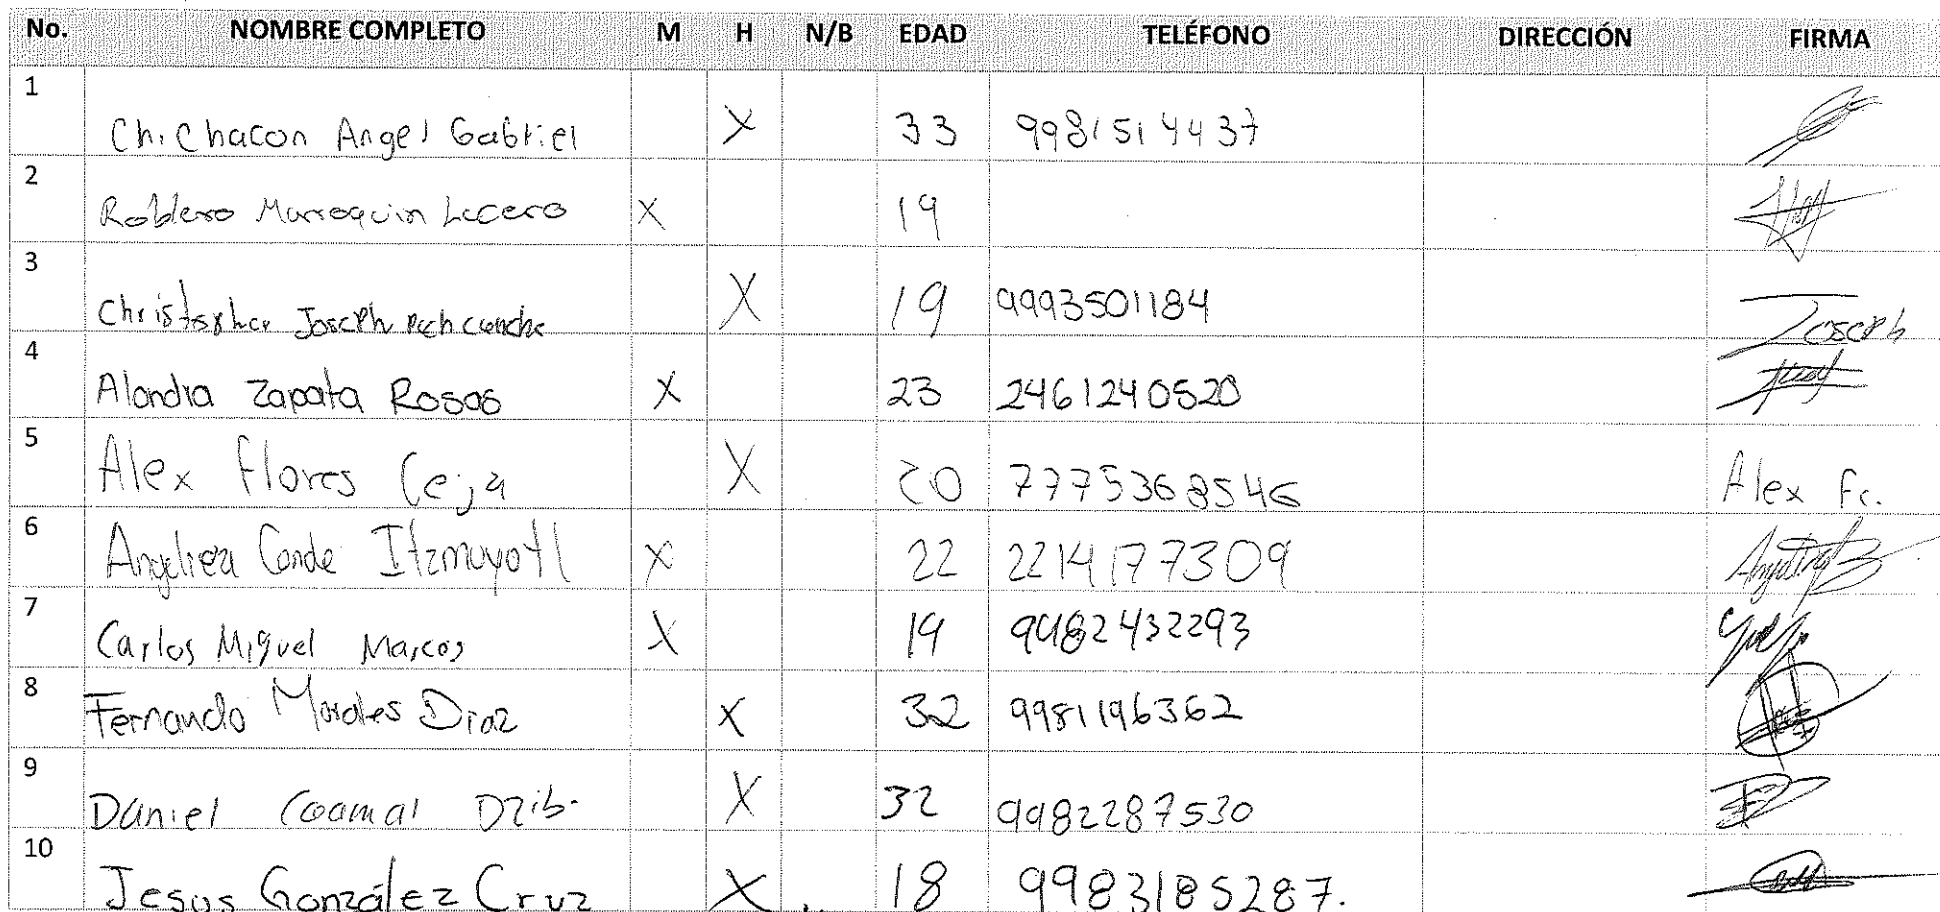 No. NOMBRE COMPLETO M H N/B EDAD TELÉFONO DIRECCIÓN FIRMA
1 Chi Chacon Angel Gabriel X 33 9981514437
2 Roblero Marroquin Lucero X 19
3 Christopher Joseph Pech canche X 19 9993501184 Joseph
4 Alondra Zapata Rosas X 23 2461240520
5 Alex Flores Ceja X 20 7775368546 Alex Fc.
6 Angelica Conde Itzmoyotl X 22 2214177309
7 Carlos Miguel Marcos X 19 9982432293
8 Fernando Morales Diaz X 32 9981196362
9 Daniel Coamal Dzib. X 32 9982287530
10 Jesus González Cruz X 18 9983185287.